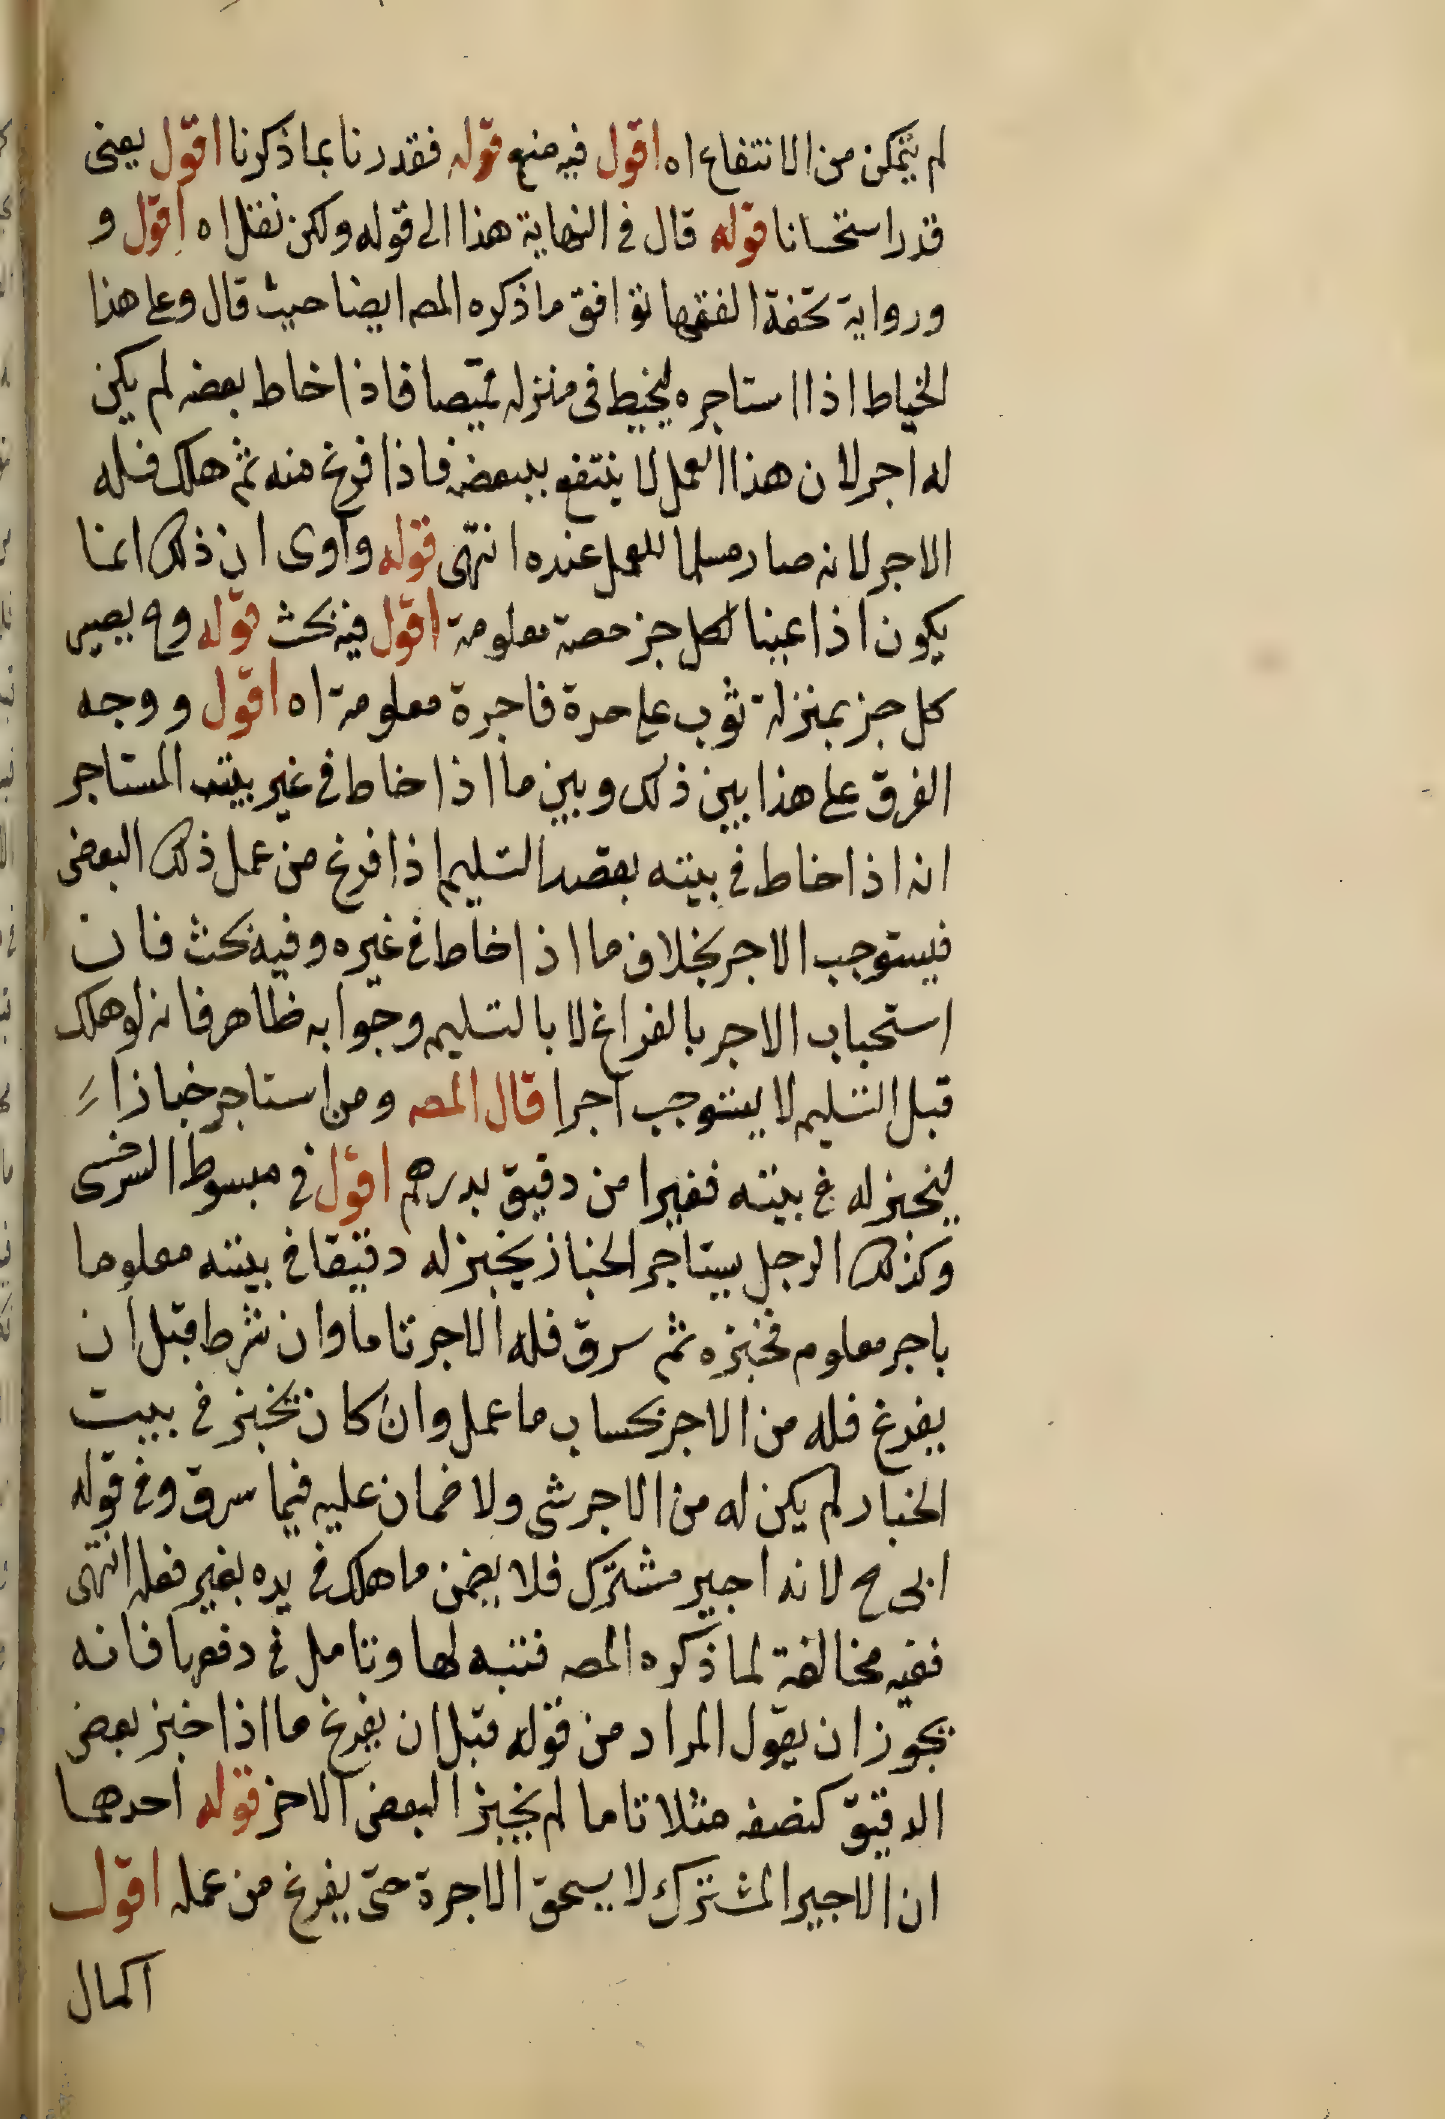 لم يتمكن من الانتفاع اه اقول فيه منع قوله فقدرنا بما ذكرنا اقول يعنى
قدر استحسانا قوله قال فى النهاية هذا الى قوله ولكن نقل اه اقول و
ورواية تحفة الفقها توافق ما ذكره المصـ ايضا حيث قال وعلى هذا
الخياط اذا استاجره ليخيط فى منزله قميصا فاذا خاط بعضه لم يكن
له اجر لان هذا العمل لا ينتفع ببعضه فاذا فرغ منه ثم هلك فله
الاجر لانه صار مسلما للعمل عنده انتهى قوله وآوى ان ذلك انما
يكون اذا عينا لكل جز حصة معلومة اقول فيه بحث قوله وح يصير
كل جز بمنزلة ثوب على حدة فاجرة معلومة اه اقول ووجه
الفرق على هذا بين ذلك وبين ما اذا خاط فى غير بيت المستاجر
انه اذا خاط فى بيته بقصد التسليم اذا فرغ من عمل ذلك البعض
فيستوجب الاجر بخلاف ما اذا خاط فى غيره وفيه بحث فان
استحباب الاجر بالفراغ لا بالتسليم وجوابه ظاهر فانه لو هلك
قبل التسليم لا يستوجب اجرا قال المصـ ومن استاجر خبازا
ليخبز له فى بيته قفيزا من دقيق بدرهم اقول فى مبسوط السرخسى
وكذلك الرجل يستاجر الخباز يخبز له دقيقا فى بيته معلوما
باجر معلوم فخبزه ثم سرق فله الاجر تاما وان شرط قبل ان
يفرغ فله من الاجر بحساب ما عمل وان كان يخبز فى بيت
الخباز لم يكن له من الاجر شى ولا ضمان عليه فيما سرق وفى قوله
ابى ح لانه اجير مشترك فلا يضمن ما هلك فى يده بغير فعله انتهى
ففيه مخالفة لما ذكره المصـ فتنبه لها وتامل فى دفعها فانه
يجوز ان يقول المراد من قوله قبل ان يفرغ ما اذا خبز بعض
الدقيق كنصفه مثلا تاما لم يخبز البعض الاخر قوله احدهما
ان الاجير المشترك لا يسحق الاجرة حتى يفرغ من عمله اقول
اكمال